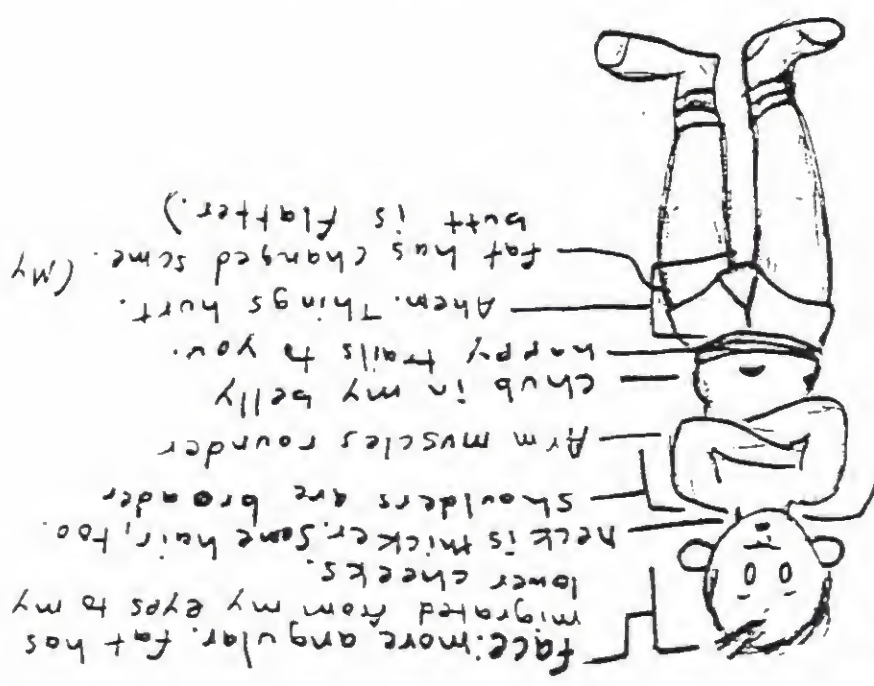 face: more angular. fat has
migrated from my eyes to my
lower cheeks.
neck is thicker. Some hair, too.
shoulders are broader
Arm muscles rounder
chub in my belly
happy trails to you.
Ahem. Things hurt.
fat has changed some. (My
butt is flatter.)